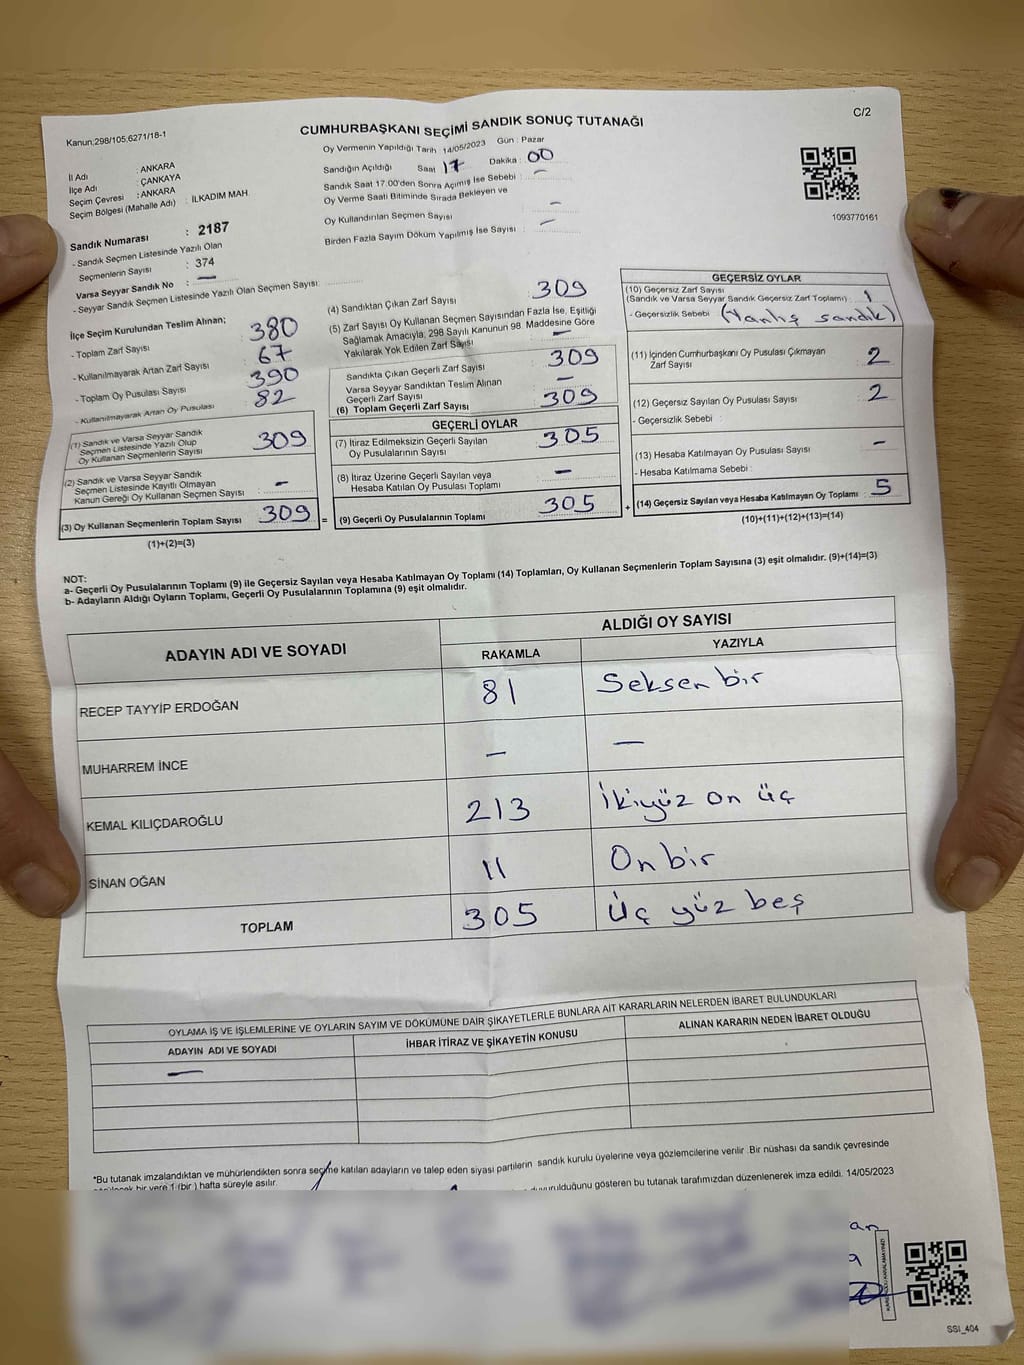 Kanun:298/105,6271/18-1
C/2
CUMHURBAŞKANI SEÇİMİ SANDIK SONUÇ TUTANAĞI
Oy Vermenin Yapıldığı Tarih 14/05/2023 Gün : Pazar
Sandığın Açıldığı Saat 17 Dakika : 00
Sandık Saat 17:00'den Sonra Açılmış İse Sebebi : —
Oy Verme Saati Bitiminde Sırada Bekleyen ve
Oy Kullandırılan Seçmen Sayısı —
Birden Fazla Sayım Döküm Yapılmış İse Sayısı : —
İl Adı : ANKARA
İlçe Adı : ÇANKAYA
Seçim Çevresi : ANKARA
Seçim Bölgesi (Mahalle Adı) : İLKADIM MAH.
1093770161
Sandık Numarası : 2187
- Sandık Seçmen Listesinde Yazılı Olan
Seçmenlerin Sayısı : 374
Varsa Seyyar Sandık No : —
- Seyyar Sandık Seçmen Listesinde Yazılı Olan Seçmen Sayısı:
İlçe Seçim Kurulundan Teslim Alınan;
- Toplam Zarf Sayısı 380
- Kullanılmayarak Artan Zarf Sayısı 67
- Toplam Oy Pusulası Sayısı 390
- Kullanılmayarak Artan Oy Pusulası 82
(1) Sandık ve Varsa Seyyar Sandık
Seçmen Listesinde Yazılı Olup
Oy Kullanan Seçmenlerin Sayısı 309
(2) Sandık ve Varsa Seyyar Sandık
Seçmen Listesinde Kayıtlı Olmayan
Kanun Gereği Oy Kullanan Seçmen Sayısı : —
(3) Oy Kullanan Seçmenlerin Toplam Sayısı 309 =
(1)+(2)=(3)
(4) Sandıktan Çıkan Zarf Sayısı : 309
(5) Zarf Sayısı Oy Kullanan Seçmen Sayısından Fazla İse, Eşitliği
Sağlamak Amacıyla; 298 Sayılı Kanunun 98. Maddesine Göre
Yakılarak Yok Edilen Zarf Sayısı —
Sandıkta Çıkan Geçerli Zarf Sayısı 309
Varsa Seyyar Sandıktan Teslim Alınan
Geçerli Zarf Sayısı —
(6) Toplam Geçerli Zarf Sayısı 309
GEÇERLİ OYLAR
(7) İtiraz Edilmeksizin Geçerli Sayılan
Oy Pusulalarının Sayısı : 305
(8) İtiraz Üzerine Geçerli Sayılan veya
Hesaba Katılan Oy Pusulası Toplamı —
(9) Geçerli Oy Pusulalarının Toplamı 305 +
GEÇERSİZ OYLAR
(10) Geçersiz Zarf Sayısı
(Sandık ve Varsa Seyyar Sandık Geçersiz Zarf Toplamı) : 1
- Geçersizlik Sebebi (Yanlış sandık)
(11) İçinden Cumhurbaşkanı Oy Pusulası Çıkmayan
Zarf Sayısı 2
(12) Geçersiz Sayılan Oy Pusulası Sayısı 2
- Geçersizlik Sebebi :
(13) Hesaba Katılmayan Oy Pusulası Sayısı —
- Hesaba Katılmama Sebebi :
(14) Geçersiz Sayılan veya Hesaba Katılmayan Oy Toplamı : 5
(10)+(11)+(12)+(13)=(14)
NOT:
a- Geçerli Oy Pusulalarının Toplamı (9) ile Geçersiz Sayılan veya Hesaba Katılmayan Oy Toplamı (14) Toplamları, Oy Kullanan Seçmenlerin Toplam Sayısına (3) eşit olmalıdır. (9)+(14)=(3)
b- Adayların Aldığı Oyların Toplamı, Geçerli Oy Pusulalarının Toplamına (9) eşit olmalıdır.
ADAYIN ADI VE SOYADI ALDIĞI OY SAYISI
RAKAMLA YAZIYLA
RECEP TAYYİP ERDOĞAN 81 Seksen bir
MUHARREM İNCE — —
KEMAL KILIÇDAROĞLU 213 İkiyüz on üç
SİNAN OĞAN 11 On bir
TOPLAM 305 Üç yüz beş
OYLAMA İŞ VE İŞLEMLERİNE VE OYLARIN SAYIM VE DÖKÜMÜNE DAİR ŞİKAYETLERLE BUNLARA AİT KARARLARIN NELERDEN İBARET BULUNDUKLARI
ADAYIN ADI VE SOYADI İHBAR İTİRAZ VE ŞİKAYETİN KONUSU ALINAN KARARIN NEDEN İBARET OLDUĞU
—
*Bu tutanak imzalandıktan ve mühürlendikten sonra seçime katılan adayların ve talep eden siyasi partilerin sandık kurulu üyelerine veya gözlemcilerine verilir. Bir nüshası da sandık çevresinde
bir yere 1 (bir) hafta süreyle asılır.
olduğunu gösteren bu tutanak tarafımızdan düzenlenerek imza edildi. 14/05/2023
SSI_404